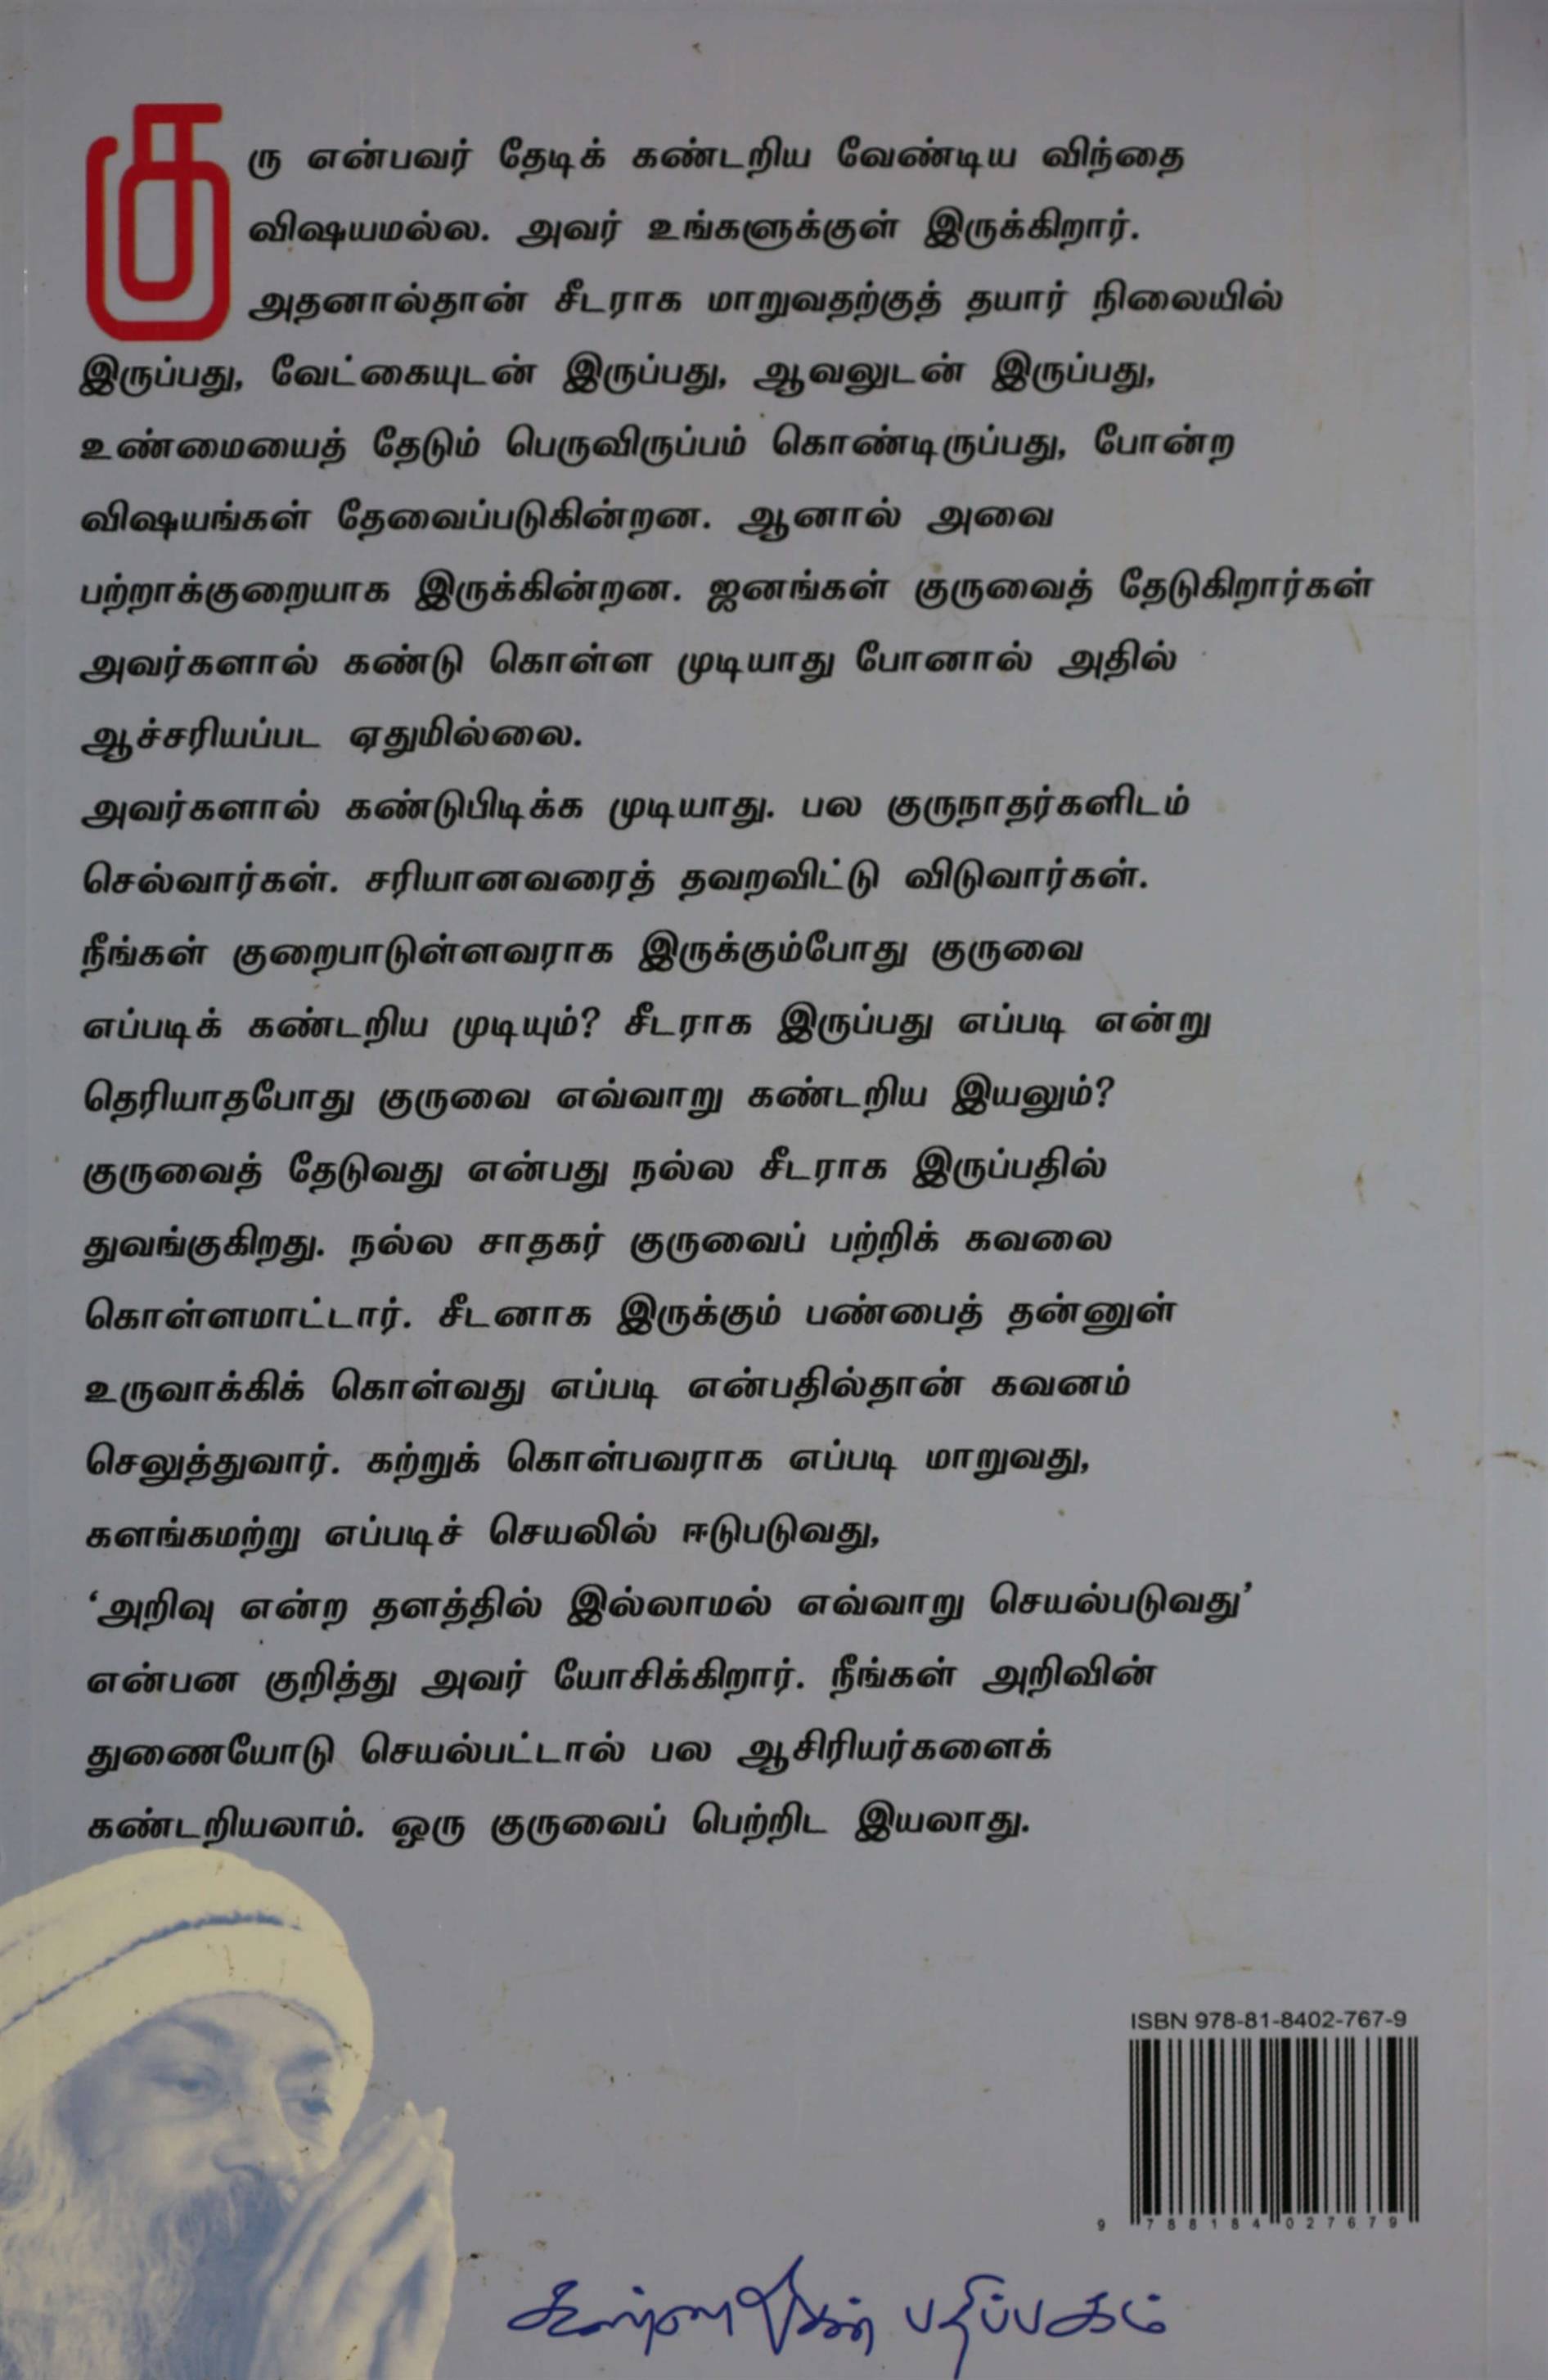 குரு என்பவர் தேடிக் கண்டறிய வேண்டிய விந்தை
விஷயமல்ல. அவர் உங்களுக்குள் இருக்கிறார்.
அதனால்தான் சீடராக மாறுவதற்குத் தயார் நிலையில்
இருப்பது, வேட்கையுடன் இருப்பது, ஆவலுடன் இருப்பது,
உண்மையைத் தேடும் பெருவிருப்பம் கொண்டிருப்பது, போன்ற
விஷயங்கள் தேவைப்படுகின்றன. ஆனால் அவை
பற்றாக்குறையாக இருக்கின்றன. ஜனங்கள் குருவைத் தேடுகிறார்கள்
அவர்களால் கண்டு கொள்ள முடியாது போனால் அதில்
ஆச்சரியப்பட ஏதுமில்லை.
அவர்களால் கண்டுபிடிக்க முடியாது. பல குருநாதர்களிடம்
செல்வார்கள். சரியானவரைத் தவறவிட்டு விடுவார்கள்.
நீங்கள் குறைபாடுள்ளவராக இருக்கும்போது குருவை
எப்படிக் கண்டறிய முடியும்? சீடராக இருப்பது எப்படி என்று
தெரியாதபோது குருவை எவ்வாறு கண்டறிய இயலும்?
குருவைத் தேடுவது என்பது நல்ல சீடராக இருப்பதில்
துவங்குகிறது. நல்ல சாதகர் குருவைப் பற்றிக் கவலை
கொள்ளமாட்டார். சீடனாக இருக்கும் பண்பைத் தன்னுள்
உருவாக்கிக் கொள்வது எப்படி என்பதில்தான் கவனம்
செலுத்துவார். கற்றுக் கொள்பவராக எப்படி மாறுவது,
களங்கமற்று எப்படிச் செயலில் ஈடுபடுவது,
‘அறிவு என்ற தளத்தில் இல்லாமல் எவ்வாறு செயல்படுவது’
என்பன குறித்து அவர் யோசிக்கிறார். நீங்கள் அறிவின்
துணையோடு செயல்பட்டால் பல ஆசிரியர்களைக்
கண்டறியலாம். ஒரு குருவைப் பெற்றிட இயலாது.
ISBN 978-81-8402-767-9
9 788184 027679
கண்ணதாசன் பதிப்பகம்